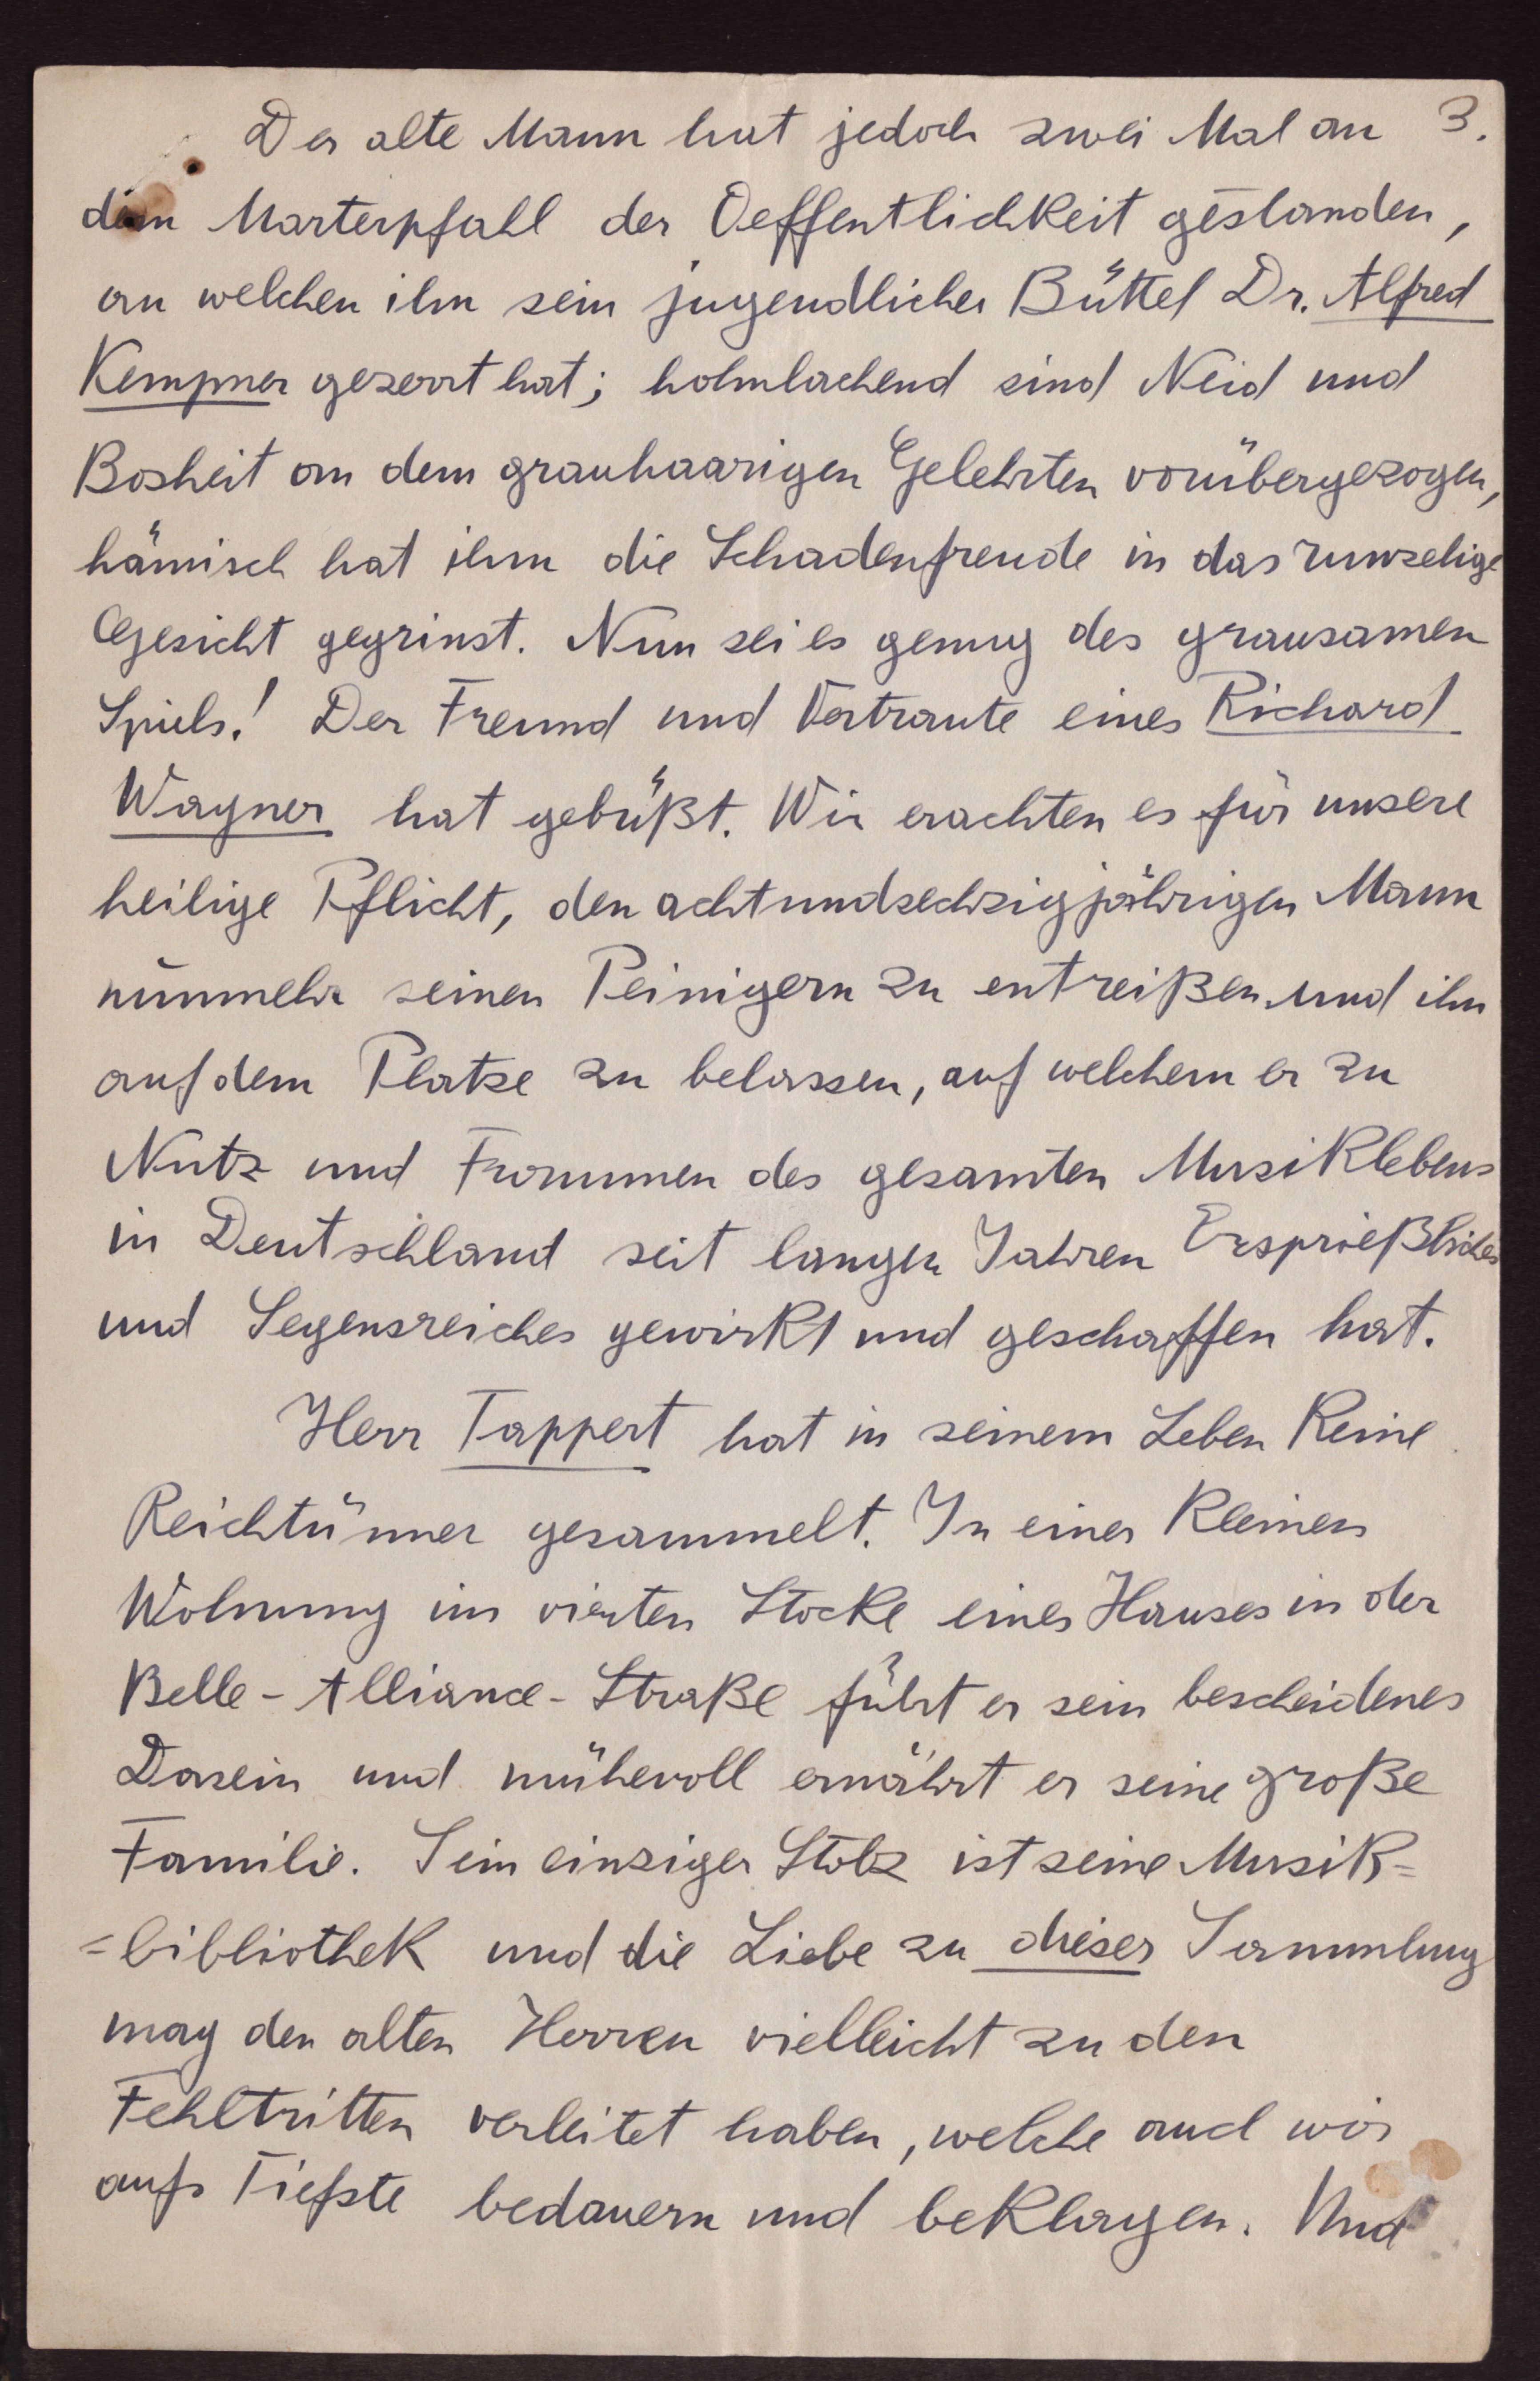 Der alte Mann hat jedoch zwei Mal an 3.
dem Marterpfahl der Oeffentlichkeit gestanden,
an welchen ihn sein jugendlicher Büttel Dr. Alfred
Kempner gezerrt hat; hohnlachend sind Neid und
Bosheit an dem grauhaarigen Gelehrten vorübergezogen,
hämisch hat ihm die Schadenfreude in das runzelige
Gesicht gegrinst. Nun sei es genug des grausamen
Spiels! Der Freund und Vertraute eines Richard
Wagner hat gebüßt. Wir erachten es für unsere
heilige Pflicht, den achtundsechzigjährigen Mann
nunmehr seinen Peinigern zu entreißen und ihn
auf dem Platze zu belassen, auf welchem er zu
Nutz und Frommen des gesamten Musiklebens
in Deutschland seit langen Jahren Ersprießliches
und Segensreiches gewirkt und geschaffen hat.
Herr Tappert hat in seinem Leben keine
Reichtümer gesammelt. In einer kleinen
Wohnung im vierten Stocke eines Hauses in der
Belle-Alliance-Straße führt er sein bescheidenes
Dasein und mühevoll ernährt er seine große
Familie. Sein einziger Stolz ist seine Musik=
=bibliothek und die Liebe zu dieser Sammlung
mag den alten Herren vielleicht zu den
Fehltritten verleitet haben, welche auch wir
aufs Tiefste bedauern und beklagen. Und